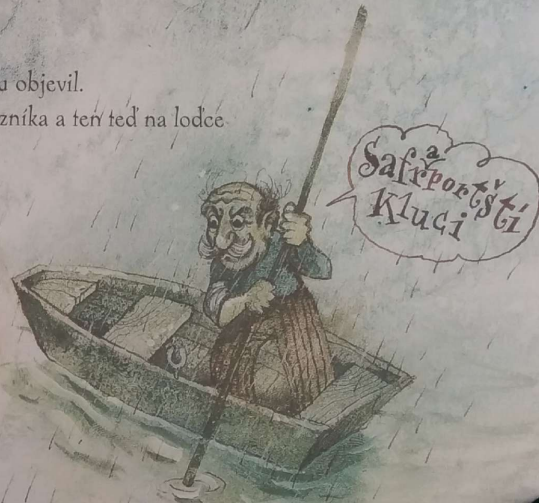 u objevil.
zníka a ten teď na loďce
Safraportští
Kluci